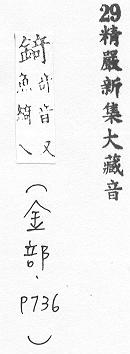 29精嚴新集大藏音
錡奇音又
魚綺乀
（金部．
P736
）